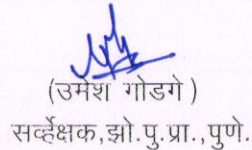 (उमेश गोडगे )
सर्व्हेक्षक,झो.पु.प्रा.,पुणे.